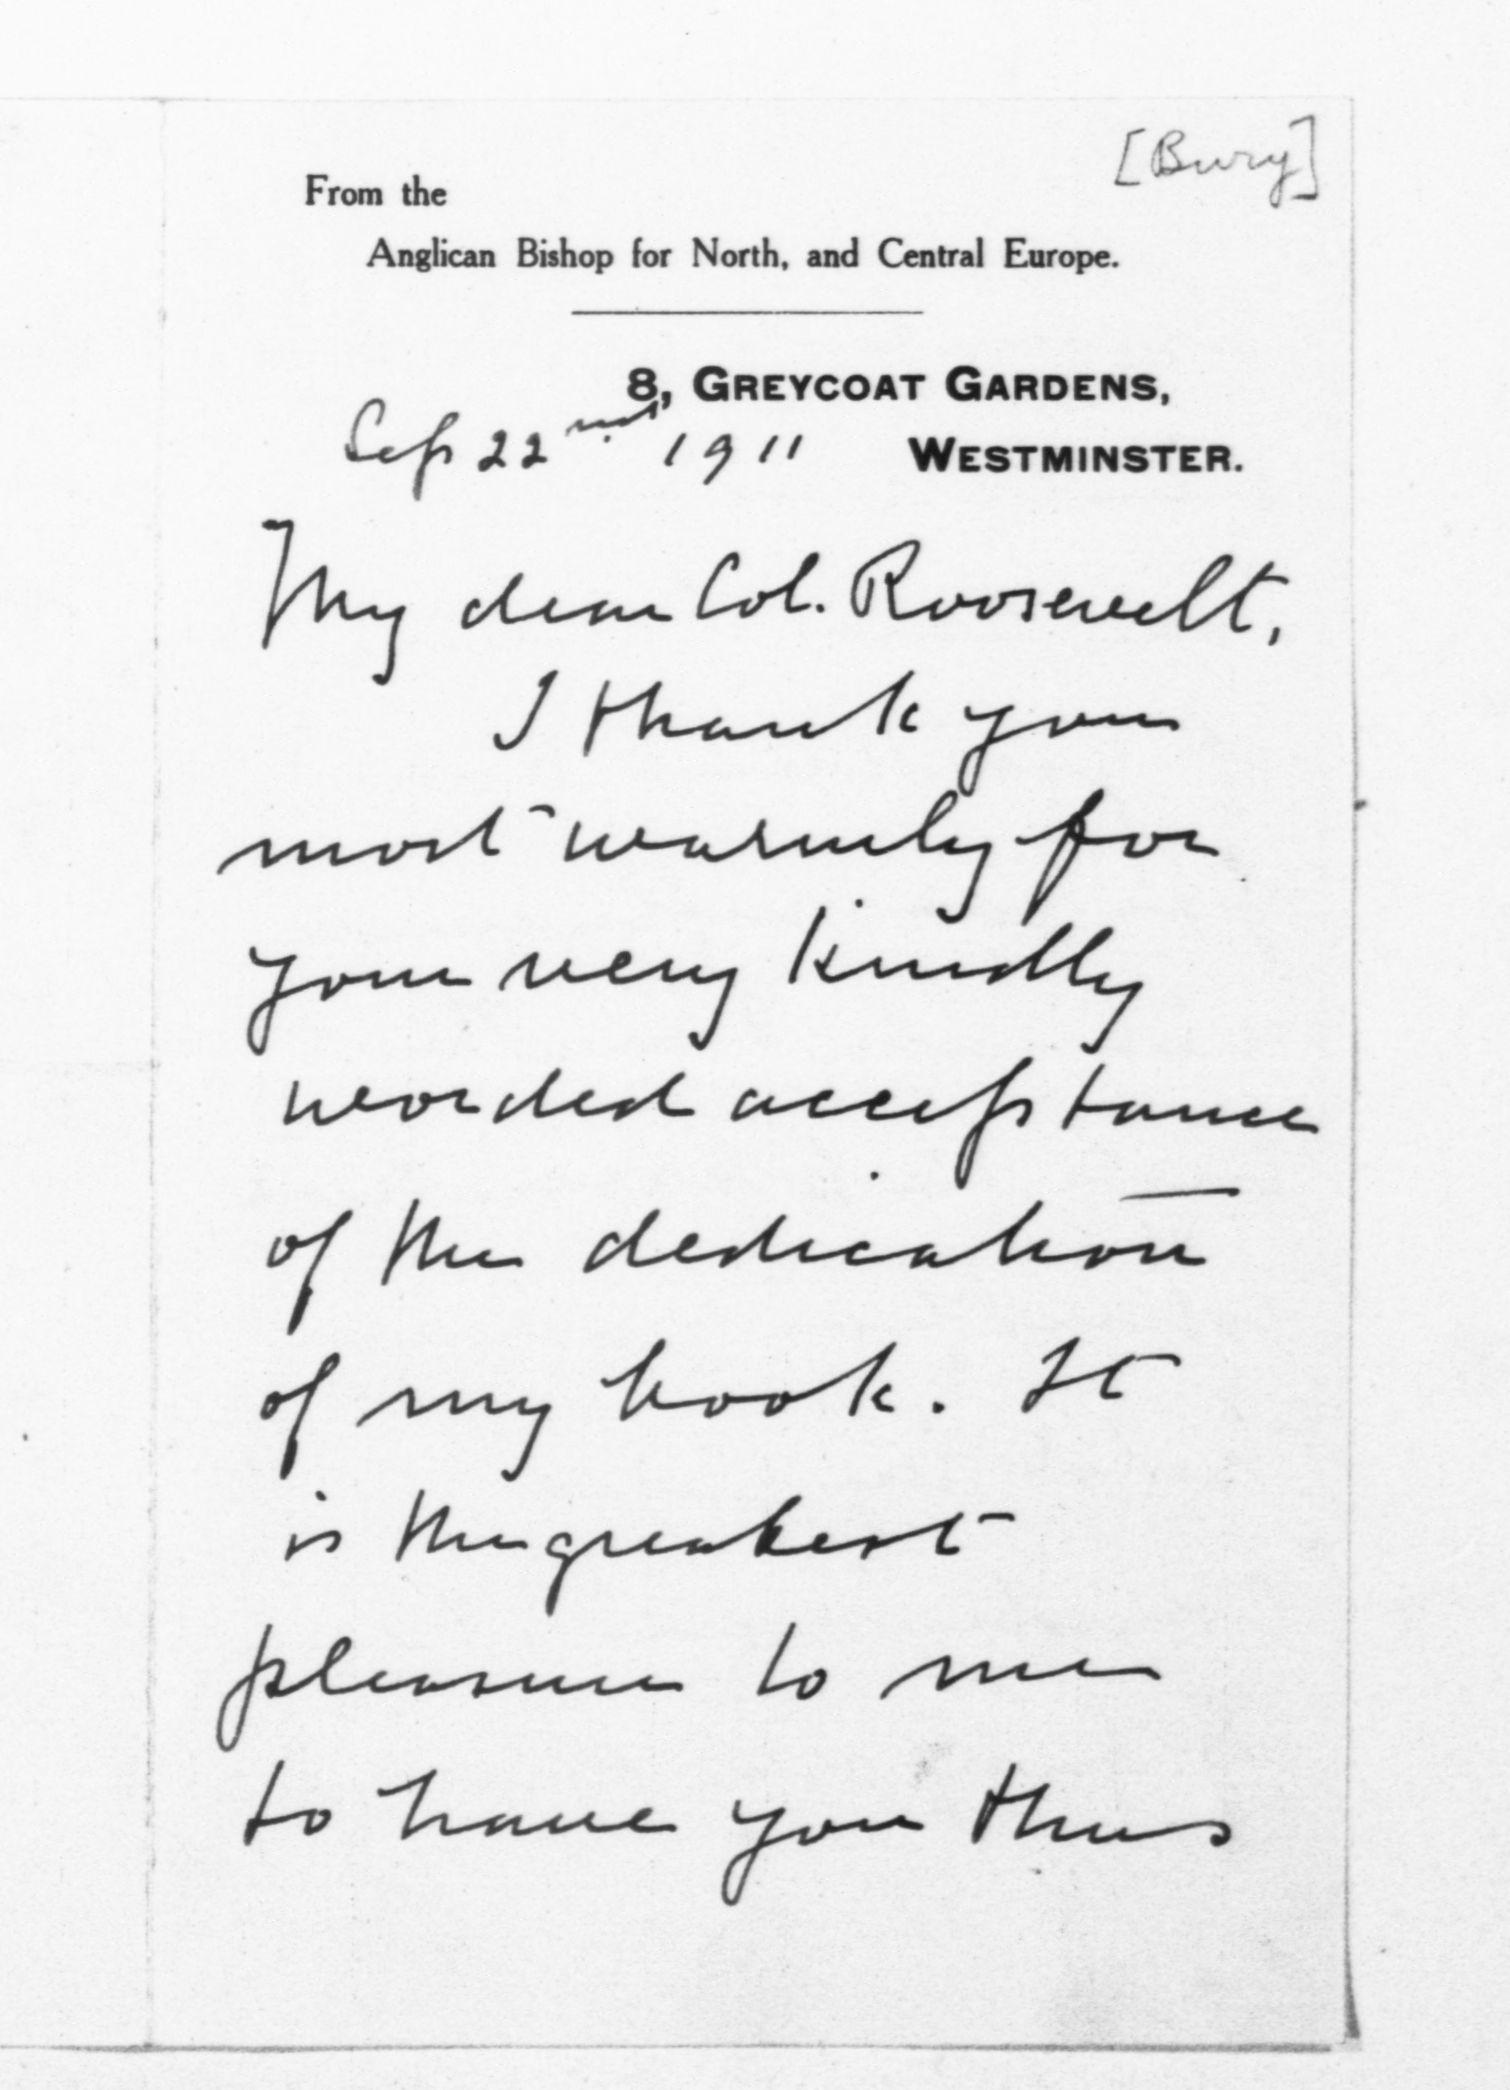 [Bury]
From the
Anglican Bishop for North, and Central Europe.
8, GREYCOAT GARDENS,
Sep 22nd 1911 WESTMINSTER.
My dear Col. Roosevelt,
I thank you
most warmly for
your very kindly
worded acceptance
of the dedication
of my book. It
is the greatest
pleasure to me
to have you thus